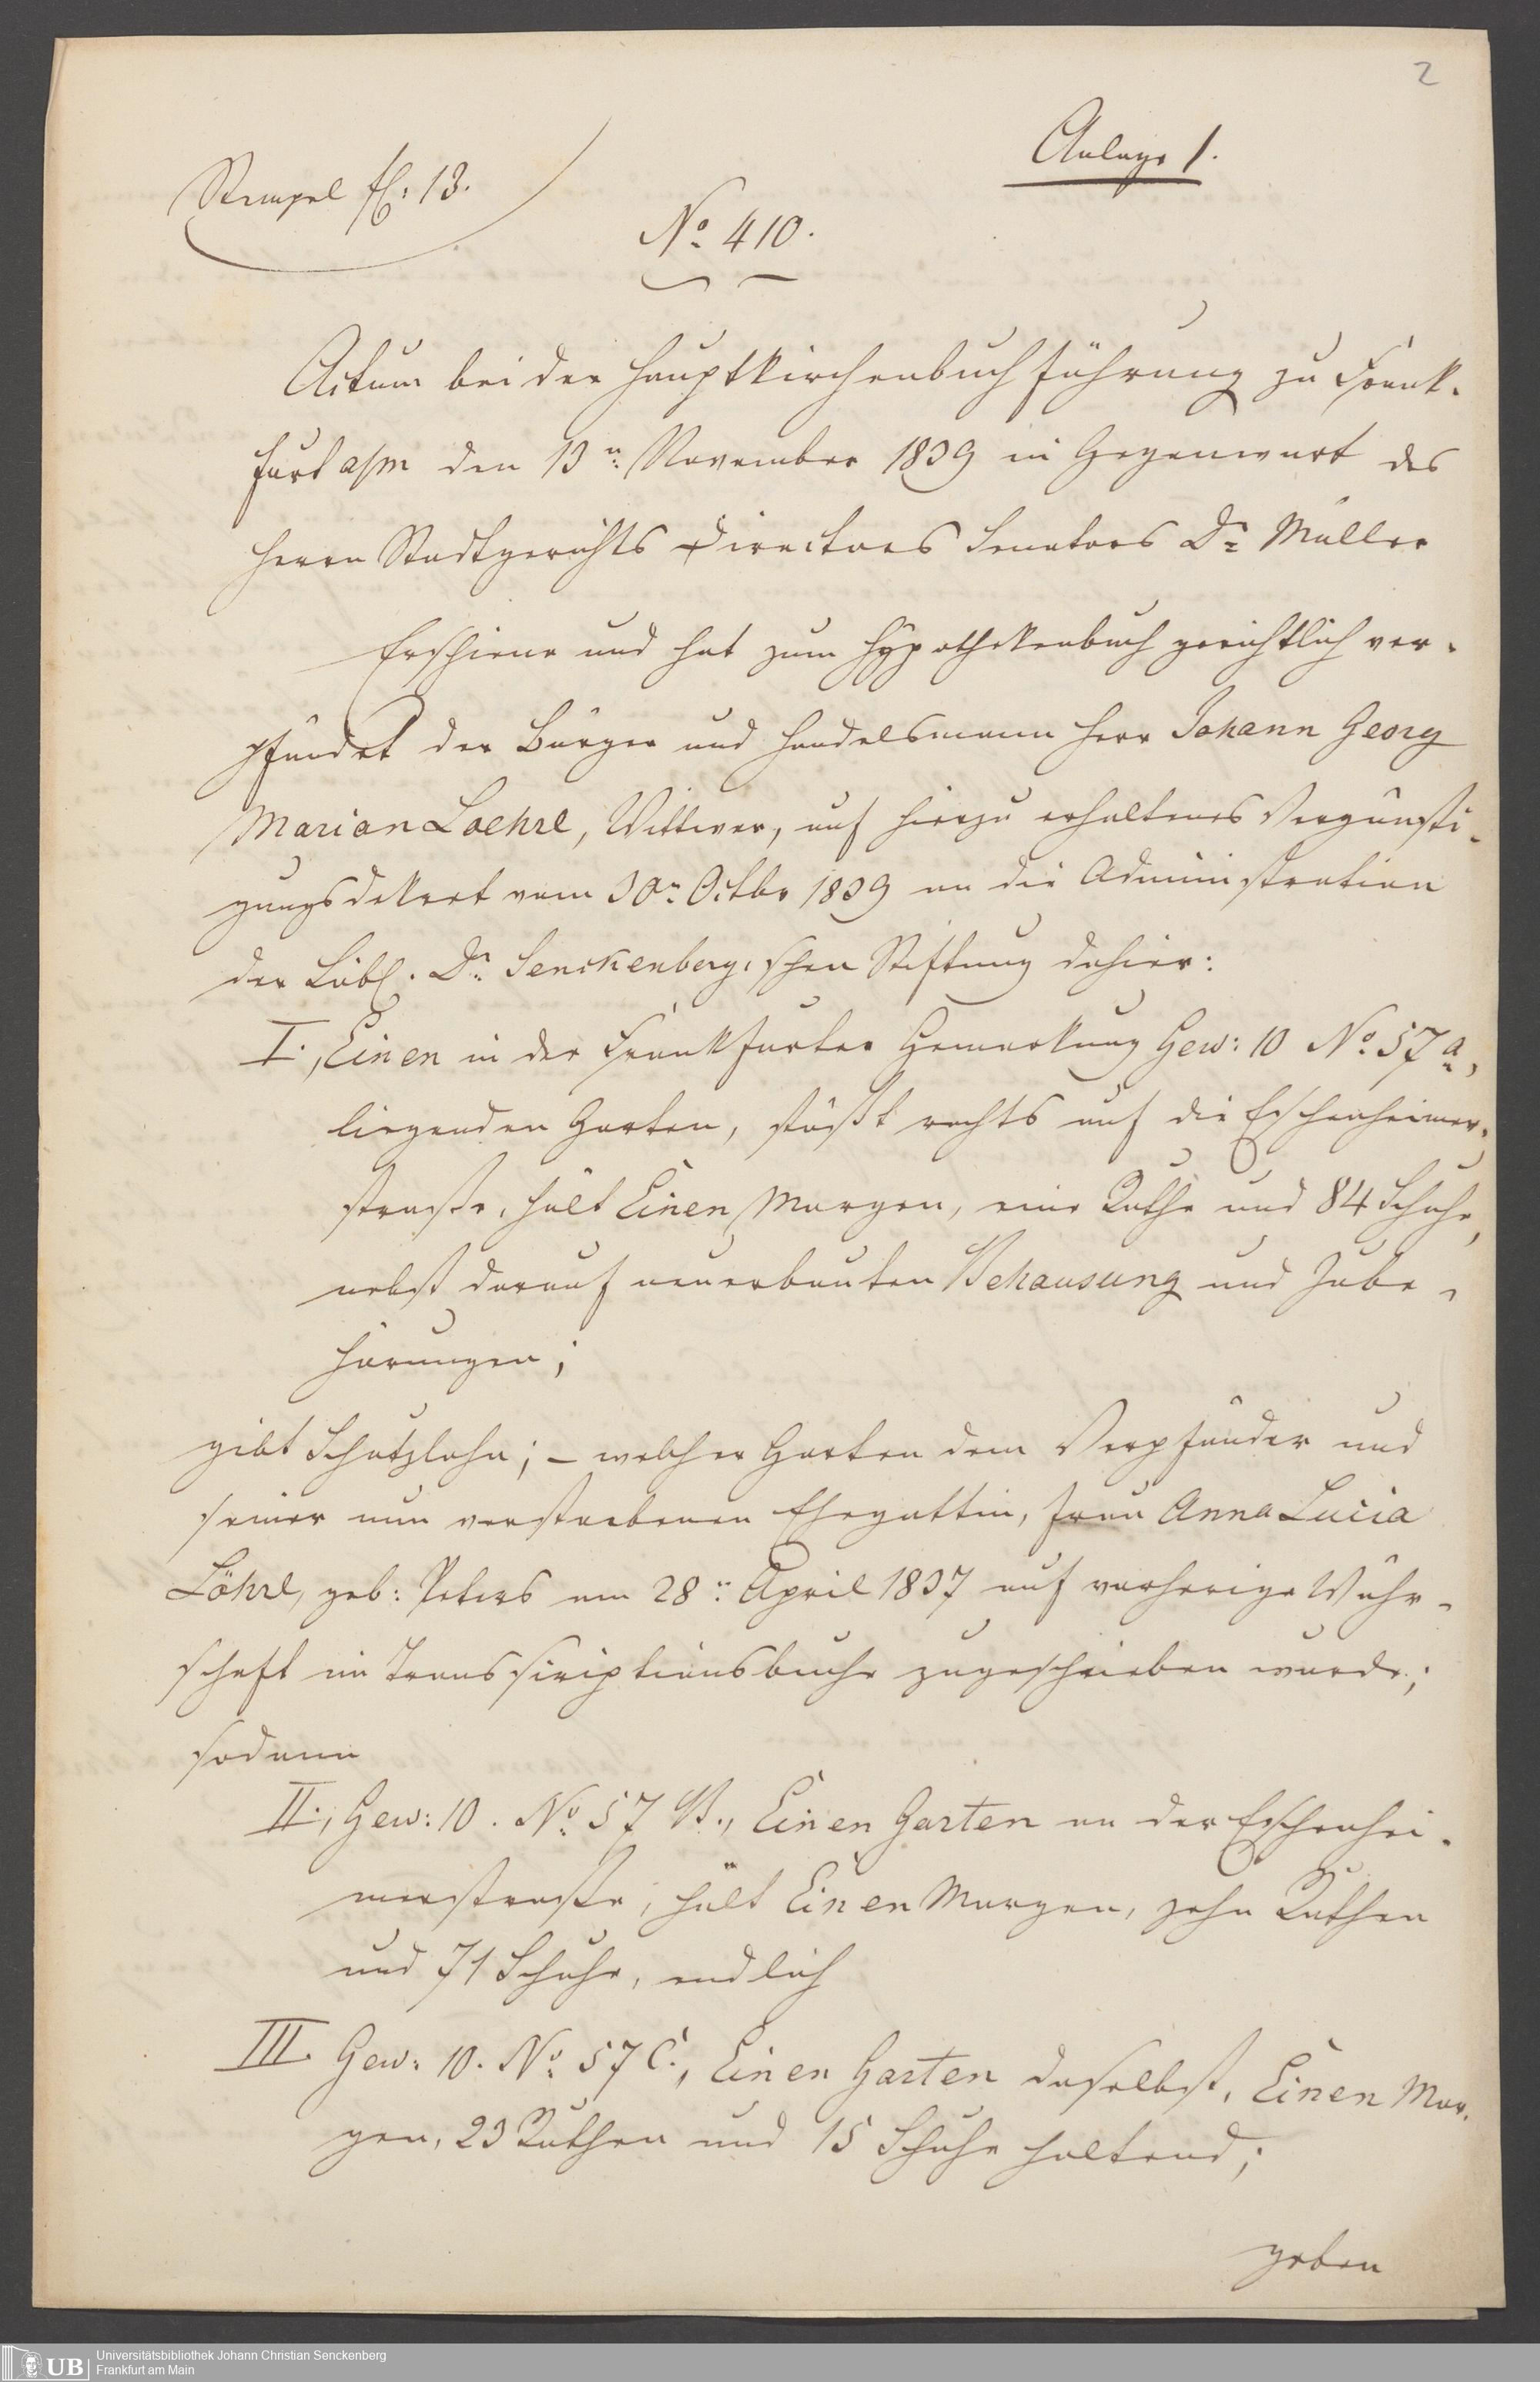 2
Anlage 1.
Stempel fl. 13.
No. 410.
Actum bei der Hauptkirchenbuchführung zu Frank-
furt a/m den 13n. November 1839 in Gegenwart des
Herrn Stadtgerichts Directors Senators Dr. Müller
Erschiene und hat zum Hypothekenbuch gerichtlich ver-
pfändet der Bürger und Handelsmann Herr Johann Georg
Marian Loehrl, Wittwer, auf hierzu erhaltenes Vergünsti-
gungsdekret vom 30n. Octbr 1839 an die Administration
der Löbl. Dr. Senckenberg. schen Stiftung dahier:
I., Einen in der Frankfurter Gemarkung Gew: 10 No. 57 a,
liegenden Garten, stößt rechts auf die Eschenheimer-
straße, hält Einen Morgen, eine Ruthe und 84 Schuhe,
nebst darauf neuerbauten Behausung und Zube-
hörungen;
gibt Schützlohn; – welcher Garten dem Verpfänder und
seiner nun verstorbenen Ehegattin, Frau Anna Lucia
Löhrl, geb: Peters am 28n. April 1837 auf vorherige Währ-
schaft im Transscriptionsbuche zugeschrieben wurde;
sodann
II., Gew: 10. No. 57 B., Einen Garten an der Eschenhei-
merstraße, hält Einen Morgen, zehn Ruthen
und 71 Schuhe, endlich
III. Gew: 10. No. 57 C., Einen Garten daselbst, Einen Mor-
gen, 23 Ruthen und 15 Schuhe haltend;
geben
UB Universitätsbibliothek Johann Christian Senckenberg
Frankfurt am Main